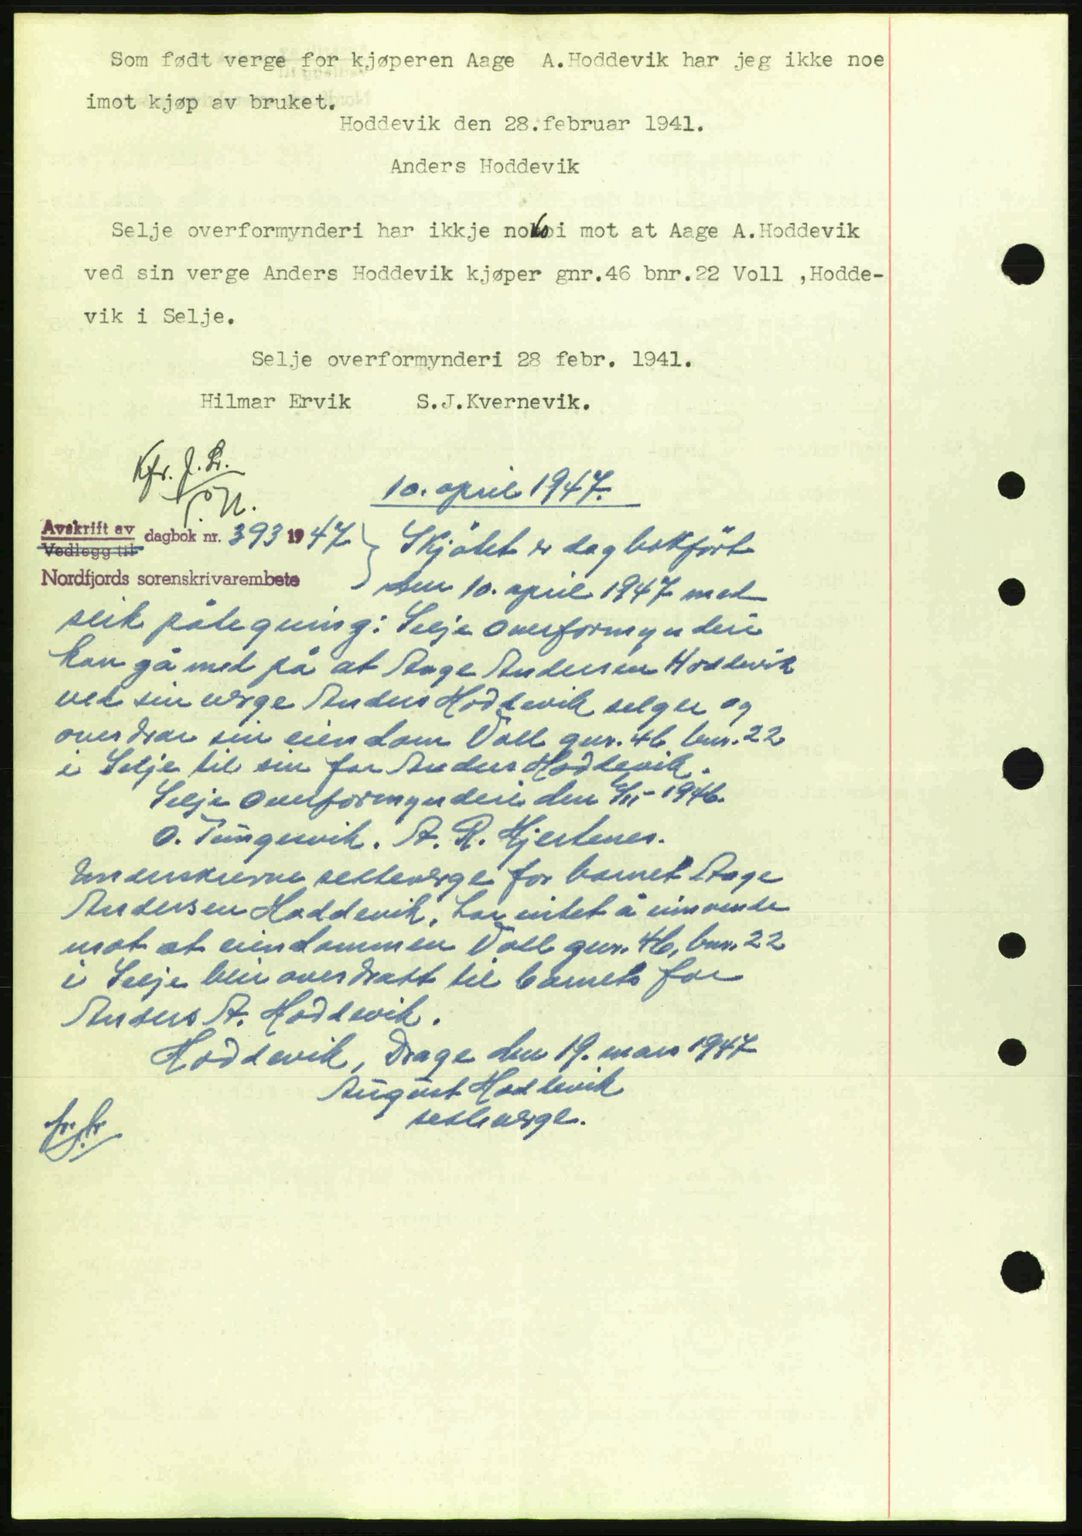 Som født verge for kjøperen Aage A.Hoddevik har jeg ikke noe
imot kjøp av bruket.
Hoddevik den 28.februar 1941.
Anders Hoddevik
Selje overformynderi har ikkje noko i mot at Aage A.Hoddevik
ved sin verge Anders Hoddevik kjøper gnr.46 bnr.22 Voll ,Hodde-
vik i Selje.
Selje overformynderi 28 febr. 1941.
Hilmar Ervik S.J.Kvernevik.
Kfr.
10. april 1947.
Avskrift av
Vedlegg til
dagbok nr. 393 1947
Nordfjords sorenskrivarembete
Skjötet er dagbokfört
den 10. april 1947 med
slik påtegning: Selje overformynderi
kan gå med på at Aage Andersen Hoddevik
ved sin verge Anders Hoddevik selger og
overdrar sin eiendom Voll gnr. 46 bnr. 22
i Selje til sin far Anders Hoddevik.
Selje overformynderi den 1946.
O. Tungesvik. A. R. Hjertenes.
Underskrevne setteverge for barnet Aage
Andersen Hoddevik, har intet å innvende
mot at eiendommen Voll gnr. 46, bnr. 22
i Selje blir overdratt til barnets far
Anders A. Hoddevik.
Hoddevik, Drage den 19. mars 1947
August Hoddevik
setteverge.